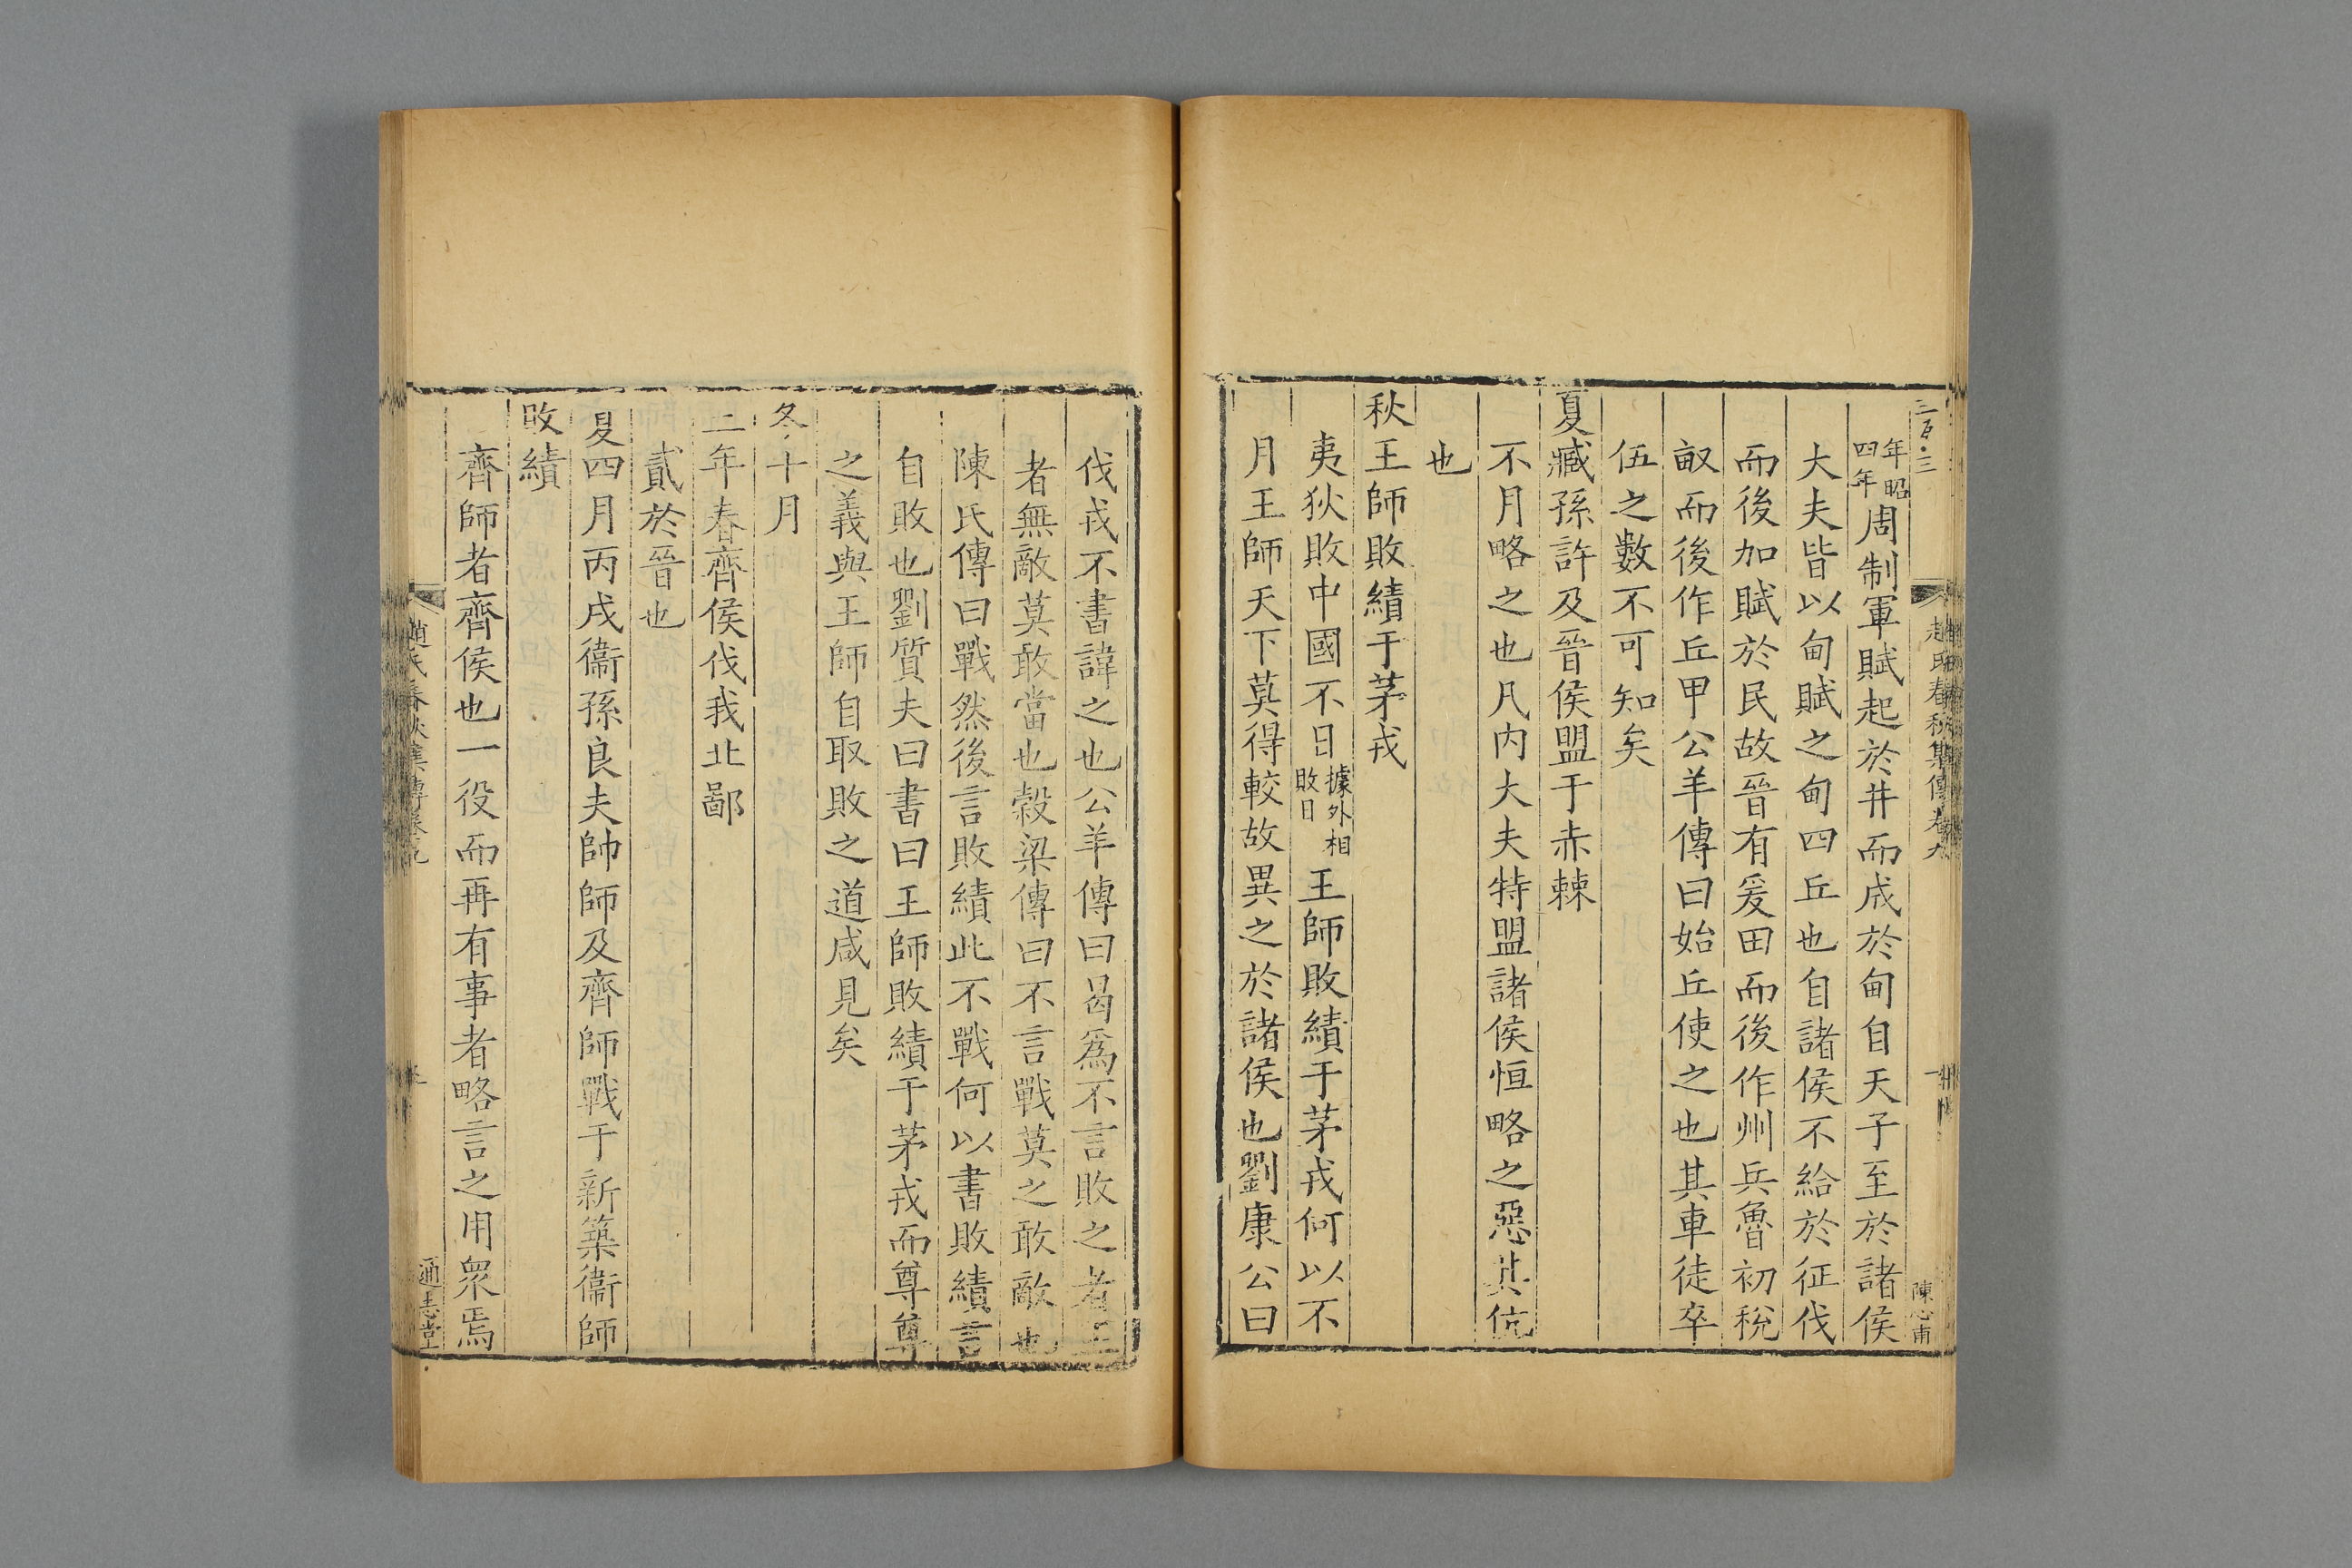 三百·三
趙氏春秋集傳卷九
一
陳心甫
年昭四年周制軍賦起於井而成於甸自天子至於諸侯
大夫皆以甸賦之甸四丘也自諸侯不給於征伐
而後加賦於民故晉有爰田而後作州兵魯初稅
畝而後作丘甲公羊傳曰始丘使之也其車徒卒
伍之數不可知矣
夏臧孫許及晉侯盟于赤棘
不月略之也凡内大夫特盟諸侯恒略之惡其伉
也
秋王師敗績于茅戎
夷狄敗中國不日據外相敗日王師敗績于茅戎何以不
月王師天下莫得較故異之於諸侯也劉康公曰
伐戎不書諱之也公羊傳曰曷爲不言敗之者王
者無敵莫敢當也穀梁傳曰不言戰莫之敢敵也
陳氏傳曰戰然後言敗績此不戰何以書敗績言
自敗也劉質夫曰書曰王師敗績于茅戎而尊尊
之義與王師自取敗之道咸見矣
冬十月
二年春齊侯伐我北鄙
貳於晉也
夏四月丙戌衞孫良夫帥師及齊師戰于新築衞師
敗績
齊師者齊侯也一役而再有事者略言之用衆焉
趙氏春秋集傳卷九
通志堂